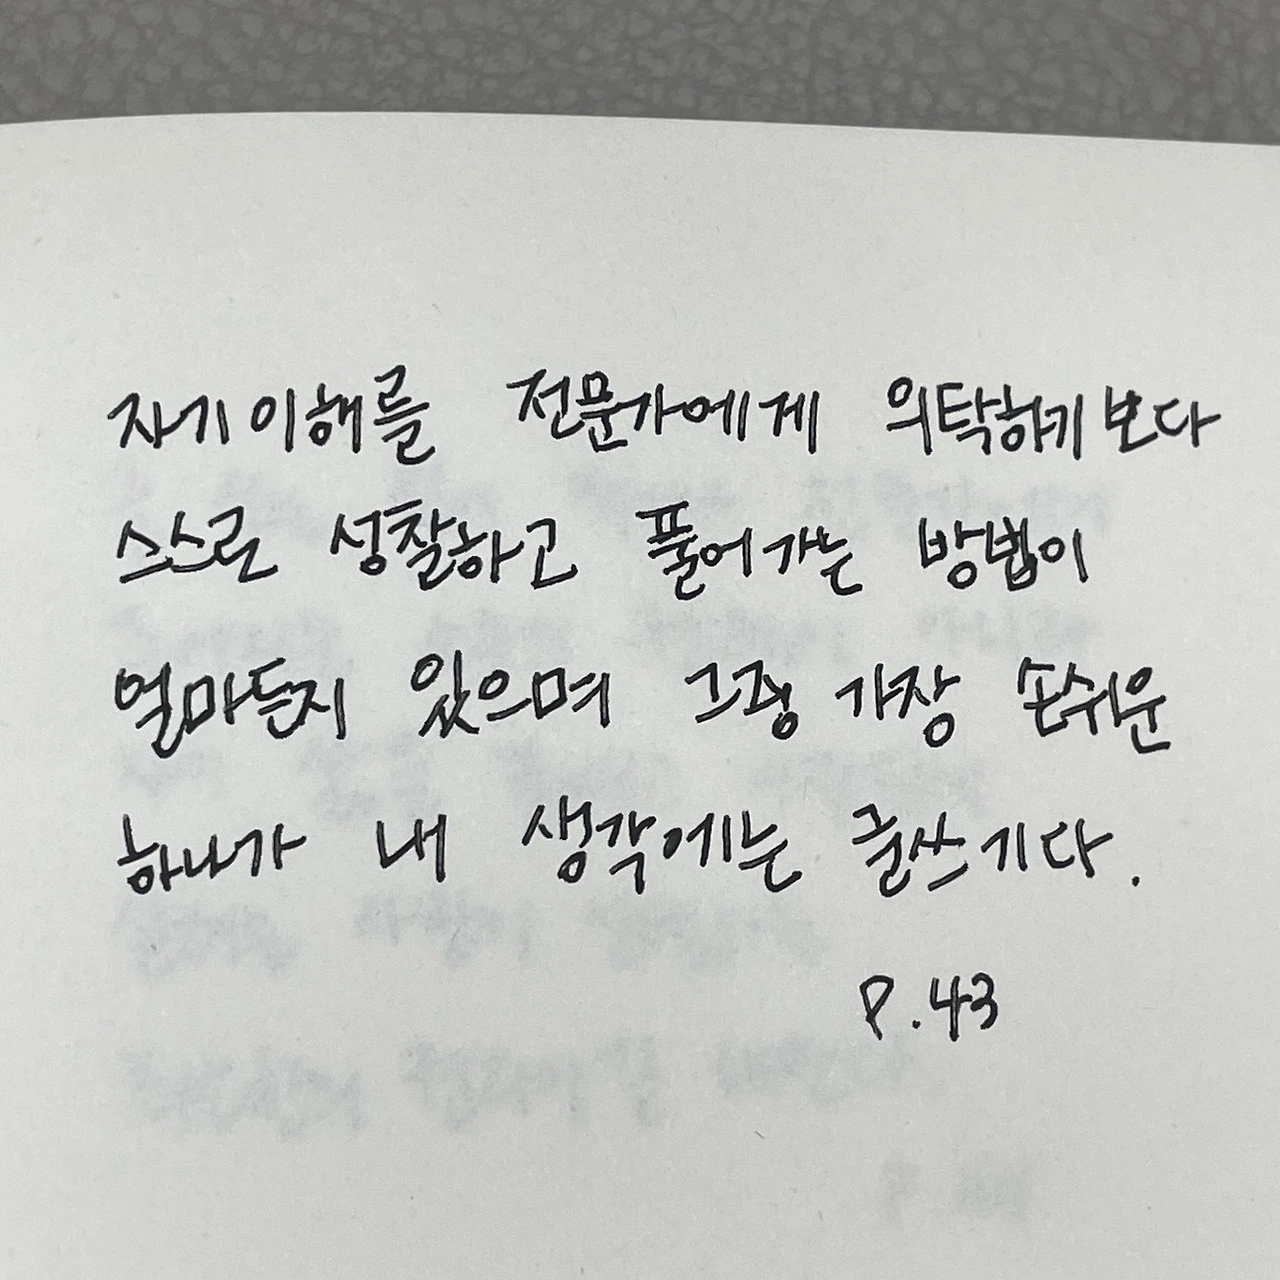 자기 이해를 전문가에게 의탁하기보다
스스로 성찰하고 풀어가는 방법이
얼마든지 있으며 그중 가장 손쉬운
하나가 내 생각에는 글쓰기다.
P.43